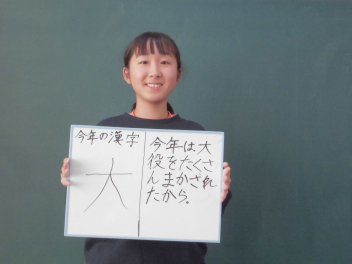 今年の漢字
大
今年は大
役をたくさ
んまかされ
たから。